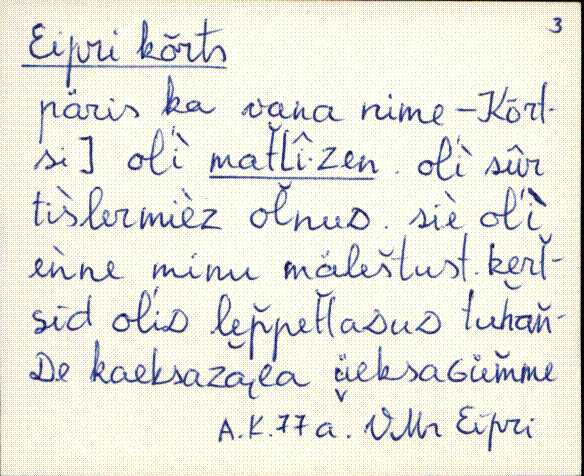 3
Eipri kõrts
päris ka vana nime – Kõrt-
si] oĺi matlî·zen. oĺi sûr
tìslermièz olnuᴅ. siè oĺì
eǹne minu mäleštust. kert-
siᴅ oliᴅ leppetlasuᴅ tuhan-
De kaeksaza
A.K. 77 a. VMr Eipri